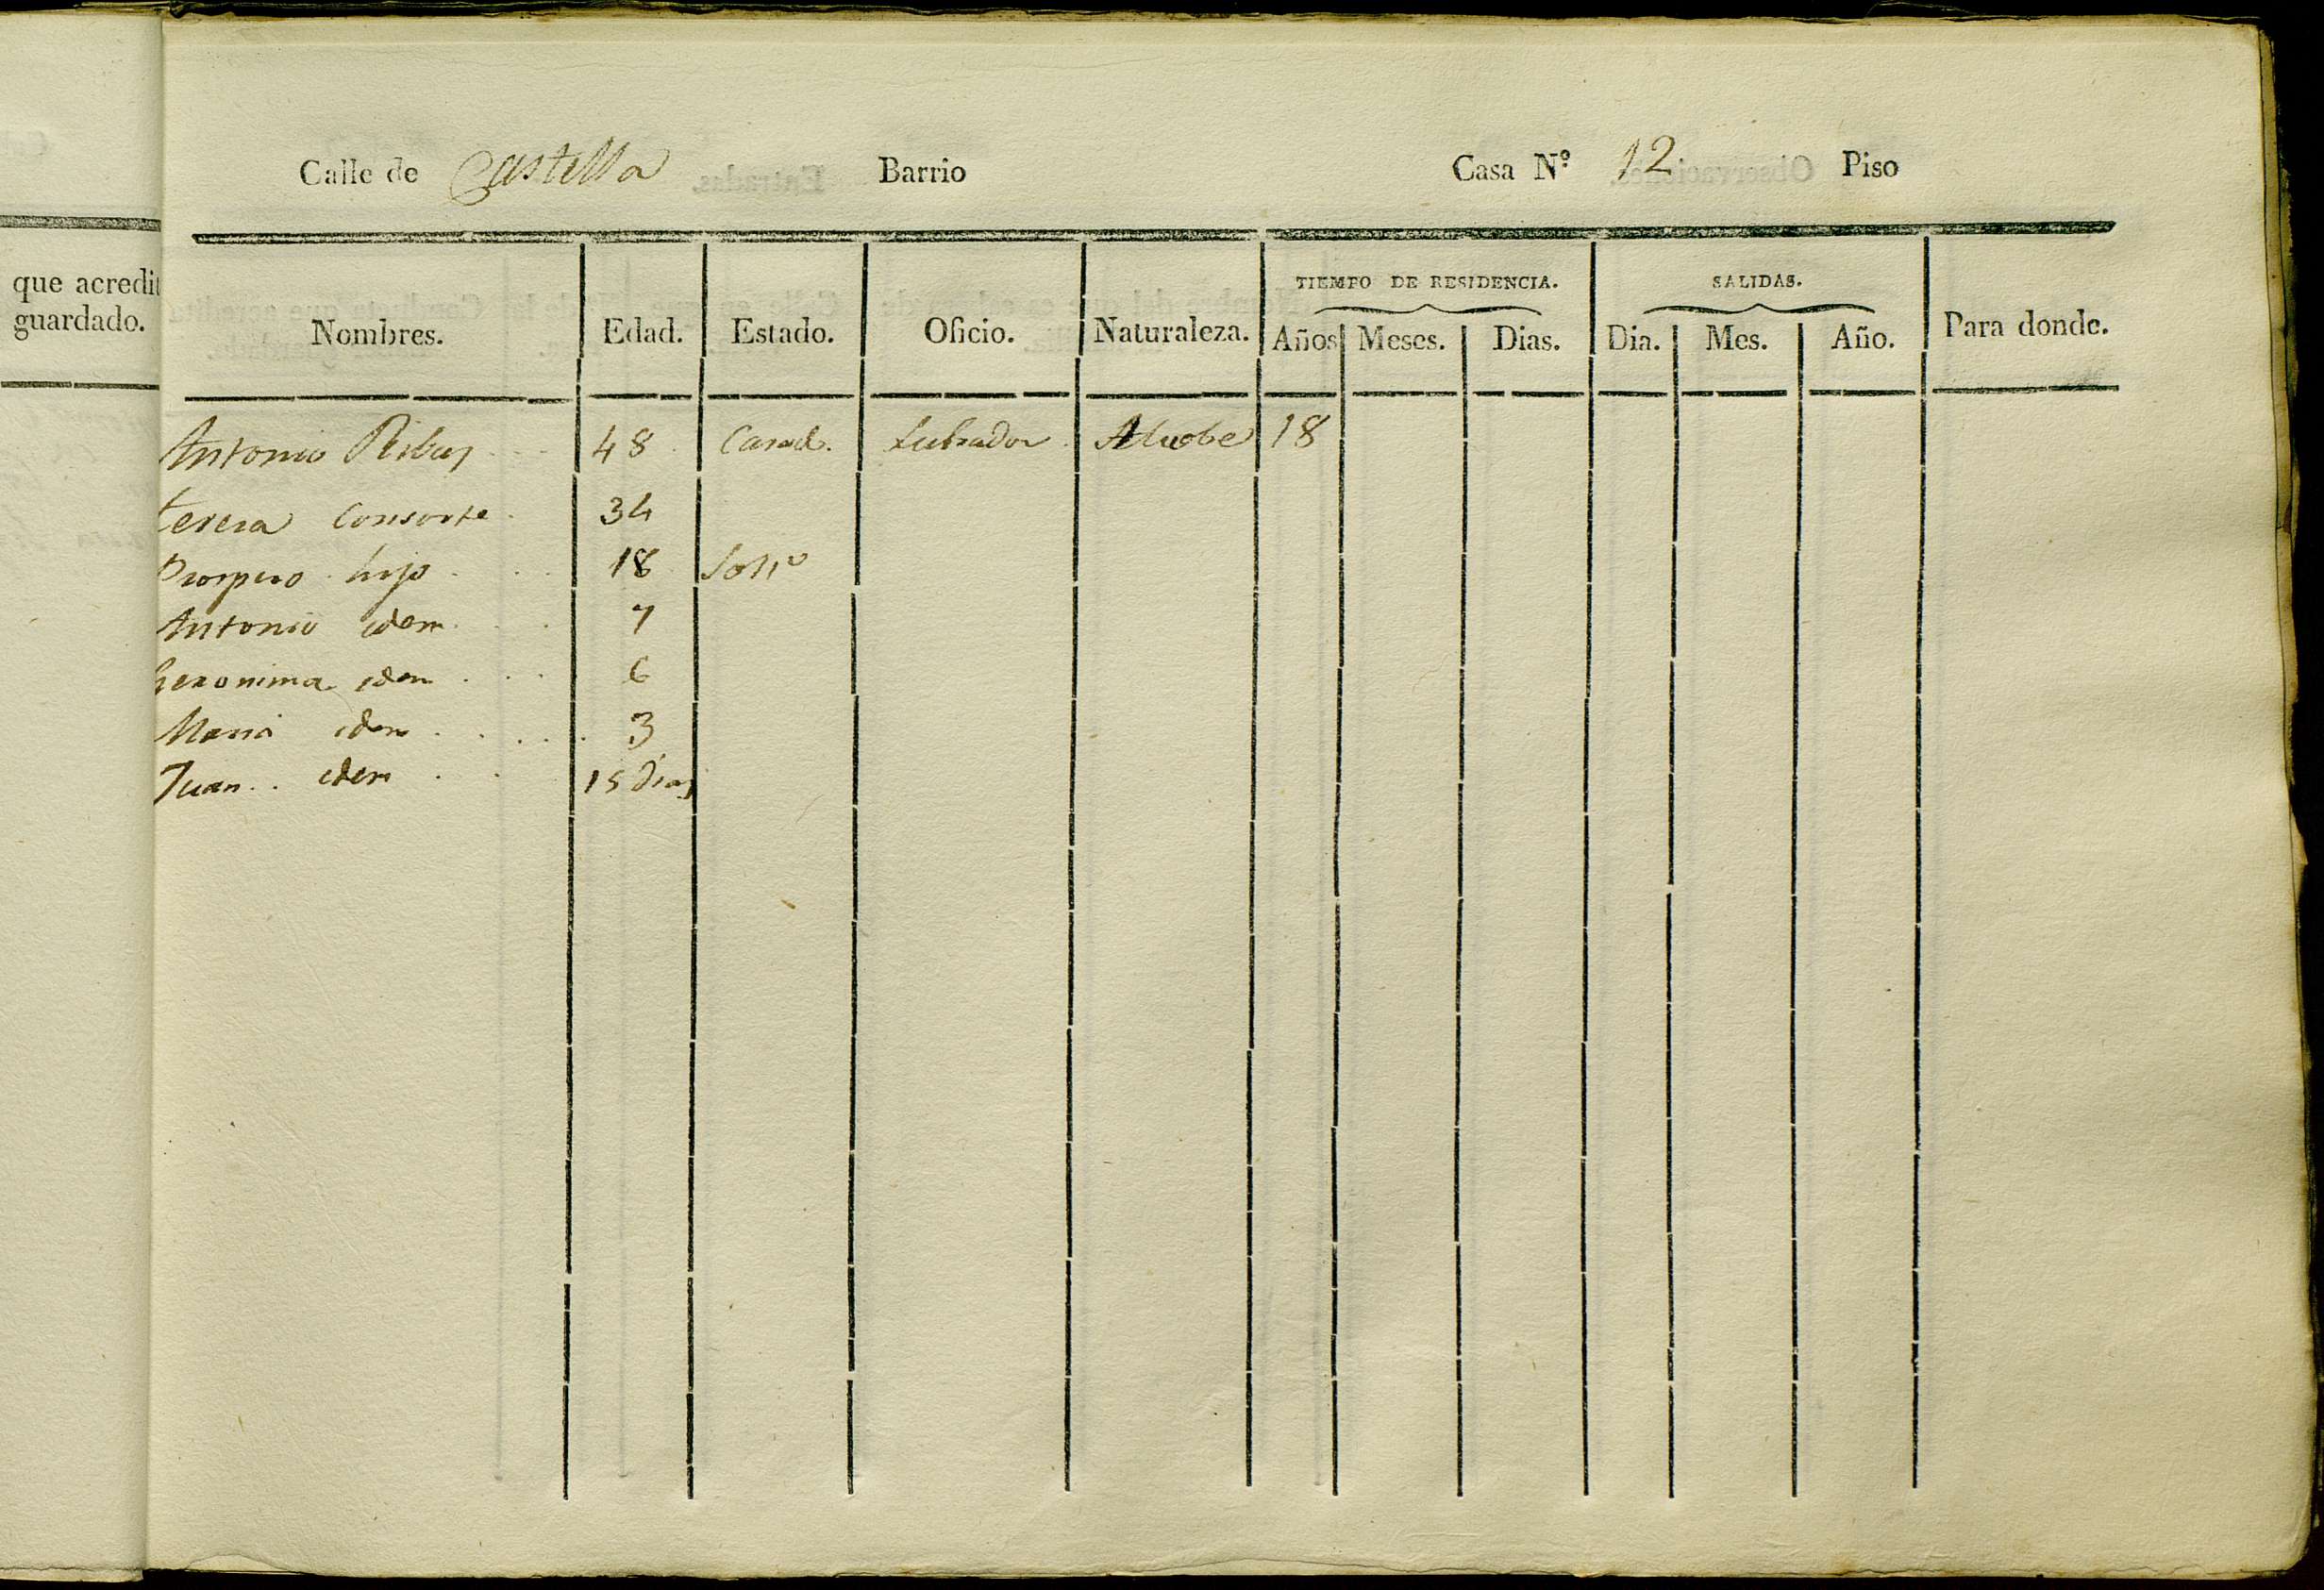 que acredit
guardado.
Calle de Castella Barrio Casa Nº 12 Piso
TIEMPO DE RESIDENCIA. SALIDAS.
Nombres. Edad. Estado. Oficio. Naturaleza. Años Meses. Dias. Dia. Mes. Año. Para donde.
Antonio Ribas 48 Casad. Labrador 18
teresa consorte 34
Prospero hijo 18 Solto
Antonio idem 7
Geronima idem 6
Maria idem 3
Juan idem 15 dias